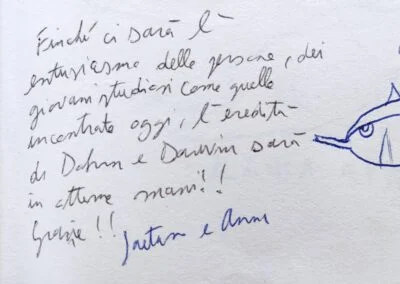 Finché ci sarà l'
entusiasmo delle persone, dei
giovani studiosi come quelle
incontrate oggi, l'eredità
di Dohrn e Darwin sarà
in ottime mani!!
Grazie!! Gaetano e Anna